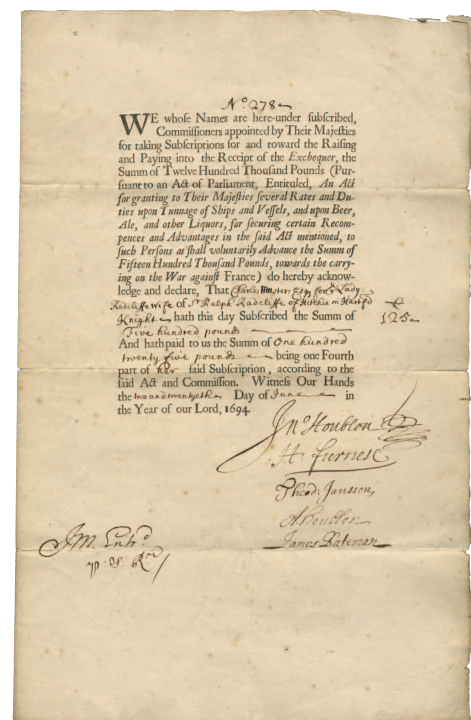 No. 278
WE whose Names are here-under subscribed,
Commissioners appointed by Their Majesties
for taking Subscriptions for and toward the Raising
and Paying into the Receipt of the Exchequer, the
Summ of Twelve Hundred Thousand Pounds (Pur-
suant to an Act of Parliament, Entituled, An Act
for granting to Their Majesties several Rates and Du-
ties upon Tunnage of Ships and Vessels, and upon Beer,
Ale, and other Liquors, for securing certain Recom-
pences and Advantages in the said Act mentioned, to
such Persons as shall voluntarily Advance the Summ of
Fifteen Hundred Thousand Pounds, towards the carry-
ing on the War against France) do hereby acknow-
ledge and declare, That Charles Esq for ye Lady
Radcliffe wife of Sr. Ralph Radcliffe of Hitchin in Hartfd
Knight hath this day Subscribed the Summ of £ 125
Five hundred pounds
And hath paid to us the Summ of One hundred
twenty five pounds being one Fourth
part of her said Subscription, according to the
said Act and Commission. Witness Our Hands
the two and twentyeth Day of June in
the Year of our Lord, 1694.
Jno. Houblon
H. Furnese
Theod: Janssen
A Houblon
James Bateman
JM. Entrd.